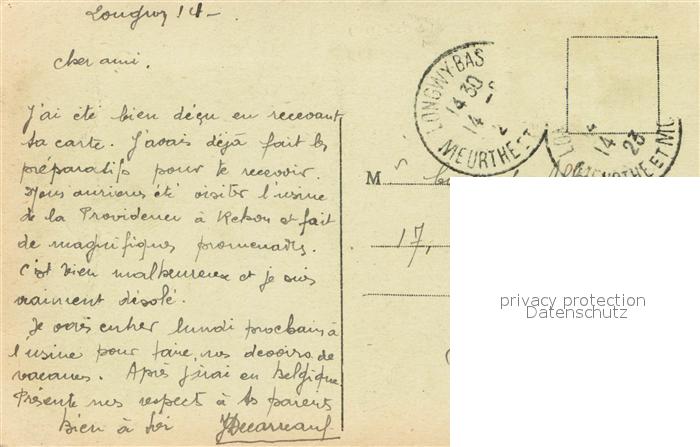 Longwy 14 -
cher ami.
J'ai été bien déçu en recevant
ta carte. J'avais déjà fait les
préparatifs pour te recevoir.
Nous aurions été visiter l'usine
de la Providence à Rehon et fait
de magnifiques promenades.
C'est bien malheureux et je suis
vraiment désolé.
Je vais entrer lundi prochain à
l'usine pour faire nos devoirs de
vacances. Après j'irai en Belgique
Présente mes respects à tes parents
Bien à toi
LONGWY-BAS
14 30
14
MEURTHE ET
14
23
MEURTHE ET MO
M
17,
privacy protection
Datenschutz